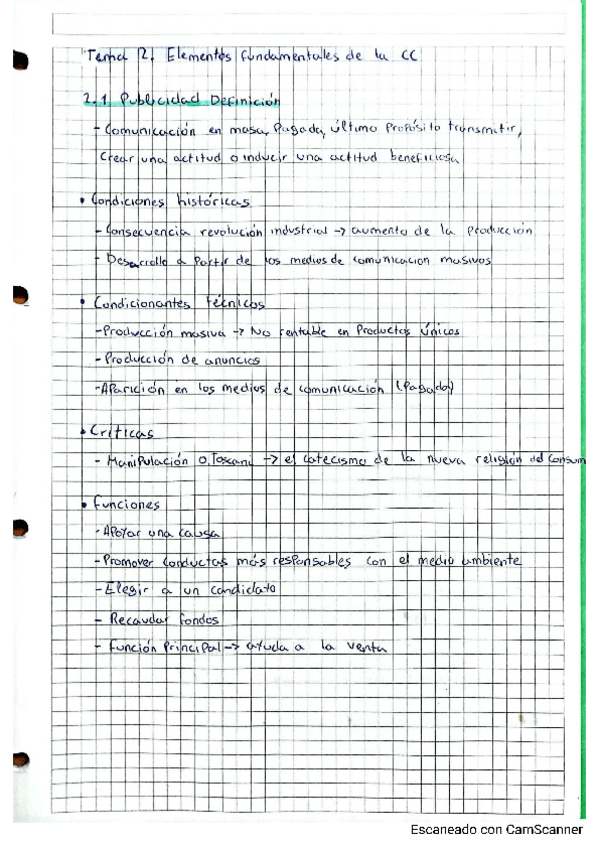 Tema 2. Elementos fundamentales de la CC
2.1 Publicidad Definición
- Comunicación en masa, Pagada, último Propósito transmitir,
Crear una actitud o inducir una actitud beneficiosa
• Condiciones históricas
- Consecuencia revolución industrial → aumento de la Producción
- Desarrollo a Partir de los medios de comunicacion masivos
• Condicionantes técnicos
- Producción masiva → No rentable en Productos Únicos
- Producción de anuncios
- Aparición en los medios de comunicación (Pagado)
• Críticas
- Manipulación O.Toscani → el catecismo de la nueva religión del consum
• funciones
- Apoyar una causa
- Promover conductas más responsables con el medio ambiente
- Elegir a un candidato
- Recaudar fondos
- función Principal → ayuda a la venta
Escaneado con CamScanner